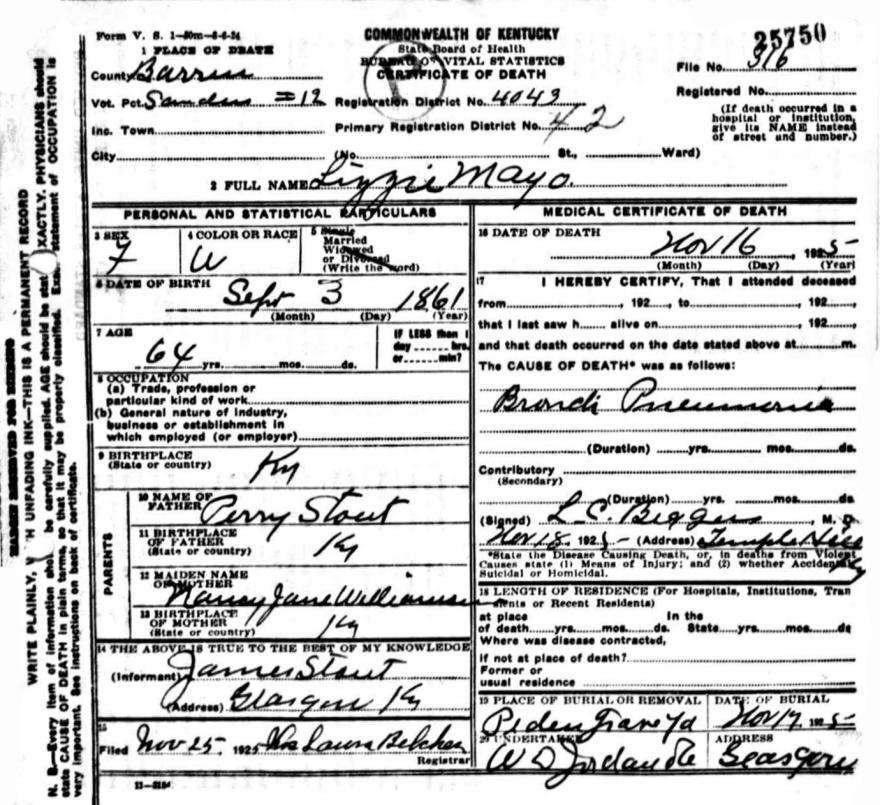 Form V. S. 1—50m—6-6-24
COMMONWEALTH OF KENTUCKY
State Board of Health
BUREAU OF VITAL STATISTICS
CERTIFICATE OF DEATH
25750
File No. 316
Registered No.
(If death occurred in a hospital or institution, give its NAME instead of street and number.)
1 PLACE OF DEATH
County Barren
Vot. Pct. Sanders #12
Registration District No. 4043
Inc. Town
Primary Registration District No. 42
City (No. St., Ward)
2 FULL NAME Lizzie Mayo
PERSONAL AND STATISTICAL PARTICULARS
3 SEX
F
4 COLOR OR RACE
W
5 Single
Married
Widowed
or Divorced
(Write the word)
6 DATE OF BIRTH
Sept 3 1861
(Month) (Day) (Year)
7 AGE
64 yrs. mos. ds.
IF LESS than 1
day hrs.
or min?
8 OCCUPATION
(a) Trade, profession or
particular kind of work
(b) General nature of industry,
business or establishment in
which employed (or employer)
9 BIRTHPLACE
(State or country)
Ky
PARENTS
10 NAME OF
FATHER
Perry Stout
11 BIRTHPLACE
OF FATHER
(State or country)
Ky
12 MAIDEN NAME
OF MOTHER
Nancy Jane Williamson
13 BIRTHPLACE
OF MOTHER
(State or country)
Ky
14 THE ABOVE IS TRUE TO THE BEST OF MY KNOWLEDGE
(Informant) James Stout
(Address) Glasgow Ky
15
Filed Nov 25, 1925 Laura Belcher
Registrar
11—3184
MEDICAL CERTIFICATE OF DEATH
16 DATE OF DEATH
Nov 16, 1925
(Month) (Day) (Year)
17 I HEREBY CERTIFY, That I attended deceased
from , 192 , to , 192 ,
that I last saw h alive on , 192 ,
and that death occurred on the date stated above at m.
The CAUSE OF DEATH* was as follows:
Bronchi Pneumonia
(Duration) yrs. mos. ds.
Contributory
(Secondary)
(Duration) yrs. mos. ds.
(Signed) L. C. Biggers, M. D.
Nov 18, 1925 (Address) Temple Hill Ky
*State the Disease Causing Death, or, in deaths from Violent
Causes state (1) Means of Injury; and (2) whether Accidental,
Suicidal or Homicidal.
18 LENGTH OF RESIDENCE (For Hospitals, Institutions, Tran
sients or Recent Residents)
at place In the
of death yrs. mos. ds. State yrs. mos. ds
Where was disease contracted,
if not at place of death?
Former or
usual residence
19 PLACE OF BURIAL OR REMOVAL
Peden Grave Yd
DATE OF BURIAL
Nov 17, 1925
20 UNDERTAKER
W D Jordan
ADDRESS
Glasgow
MARGIN RESERVED FOR BINDING
WRITE PLAINLY, UNFADING INK—THIS IS A PERMANENT RECORD
N. B.—Every item of information should be carefully supplied. AGE should be stated EXACTLY. PHYSICIANS should
state CAUSE OF DEATH in plain terms, so that it may be properly classified. Exact statement of OCCUPATION is
very important. See instructions on back of certificate.